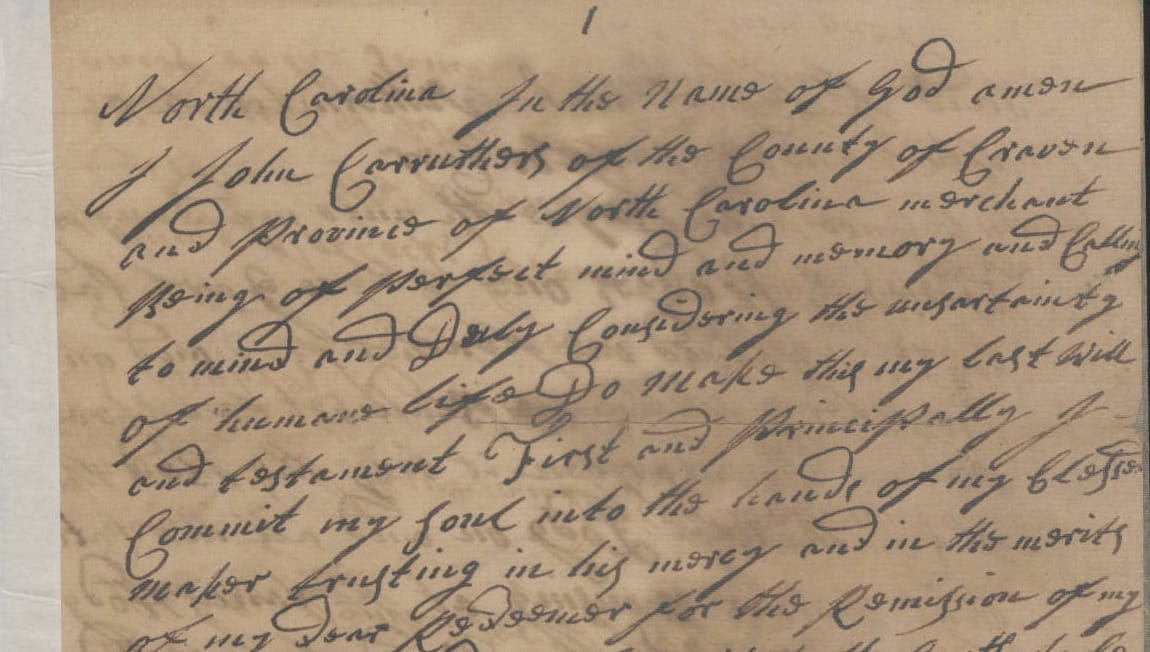 1
North Carolina In the Name of God amen
I John Carruthers of the County of Craven
and Province of North Carolina merchant
Being of perfect mind and memory and Calling
to mind and Duly Considering the unsartainty
of humane life Do make this my last Will
and testament First and Principally I
Commit my soul into the hands of my blesse
maker trusting in his mercy and in the merits
of my Dear Redeemer for the Remission of my